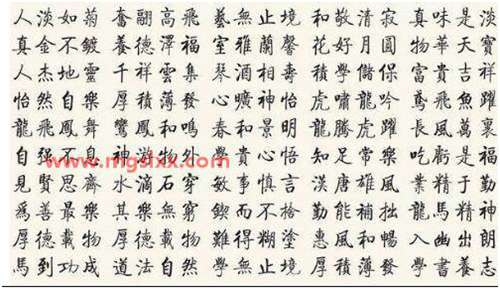 人淡如菊 奮翮高飛 藝無止境 和敬清寂 真味是淡
真金不鍍 養德澤福 室雅蘭馨 花好月圓 物華天寶
人杰地靈 千祥雲集 琴 相壽 學儲保 富貴吉祥
怡然自樂 厚積薄發 心曠神怡 虎嘯龍吟 鳶飛魚躍
龍飛鳳舞 鸞鳳和鳴 春和景明 龍騰虎躍 長風萬裏
自強不息 神游物外 學貴心悟 知足常樂 吃虧是福
www.mgslxx.com
見賢思齊 水滴石穿 敏事慎言 漢唐雄風 業精于勤
為善最樂 其樂無窮 鍥而不捨 勤能補拙 龍馬精神
厚德載物 難得糊塗 惠風和暢 入幽出朗
馬到功成 道法自然 學無止境 厚積薄發 學書養志